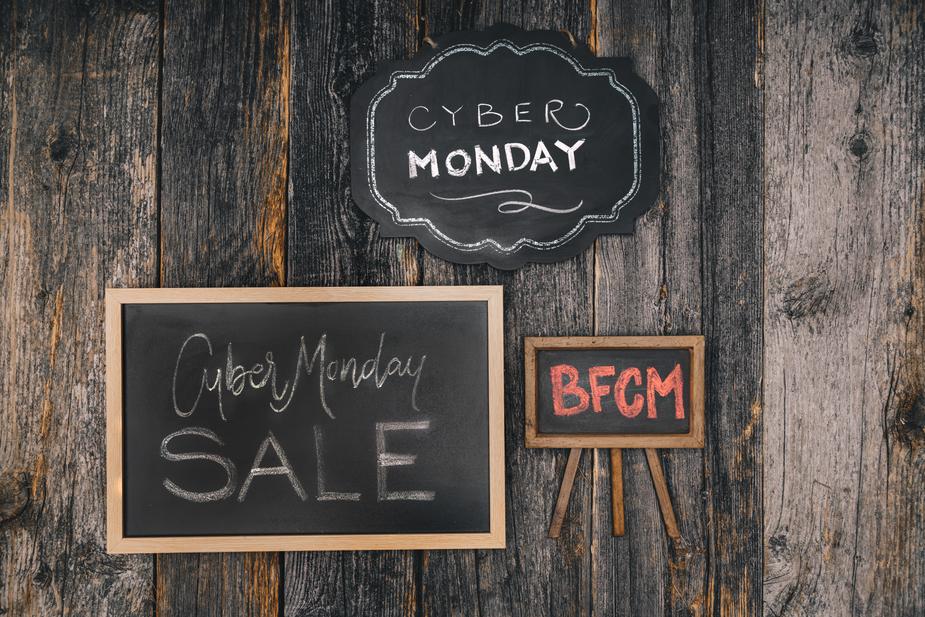 CYBER
MONDAY
Cyber Monday
SALE
BFCM